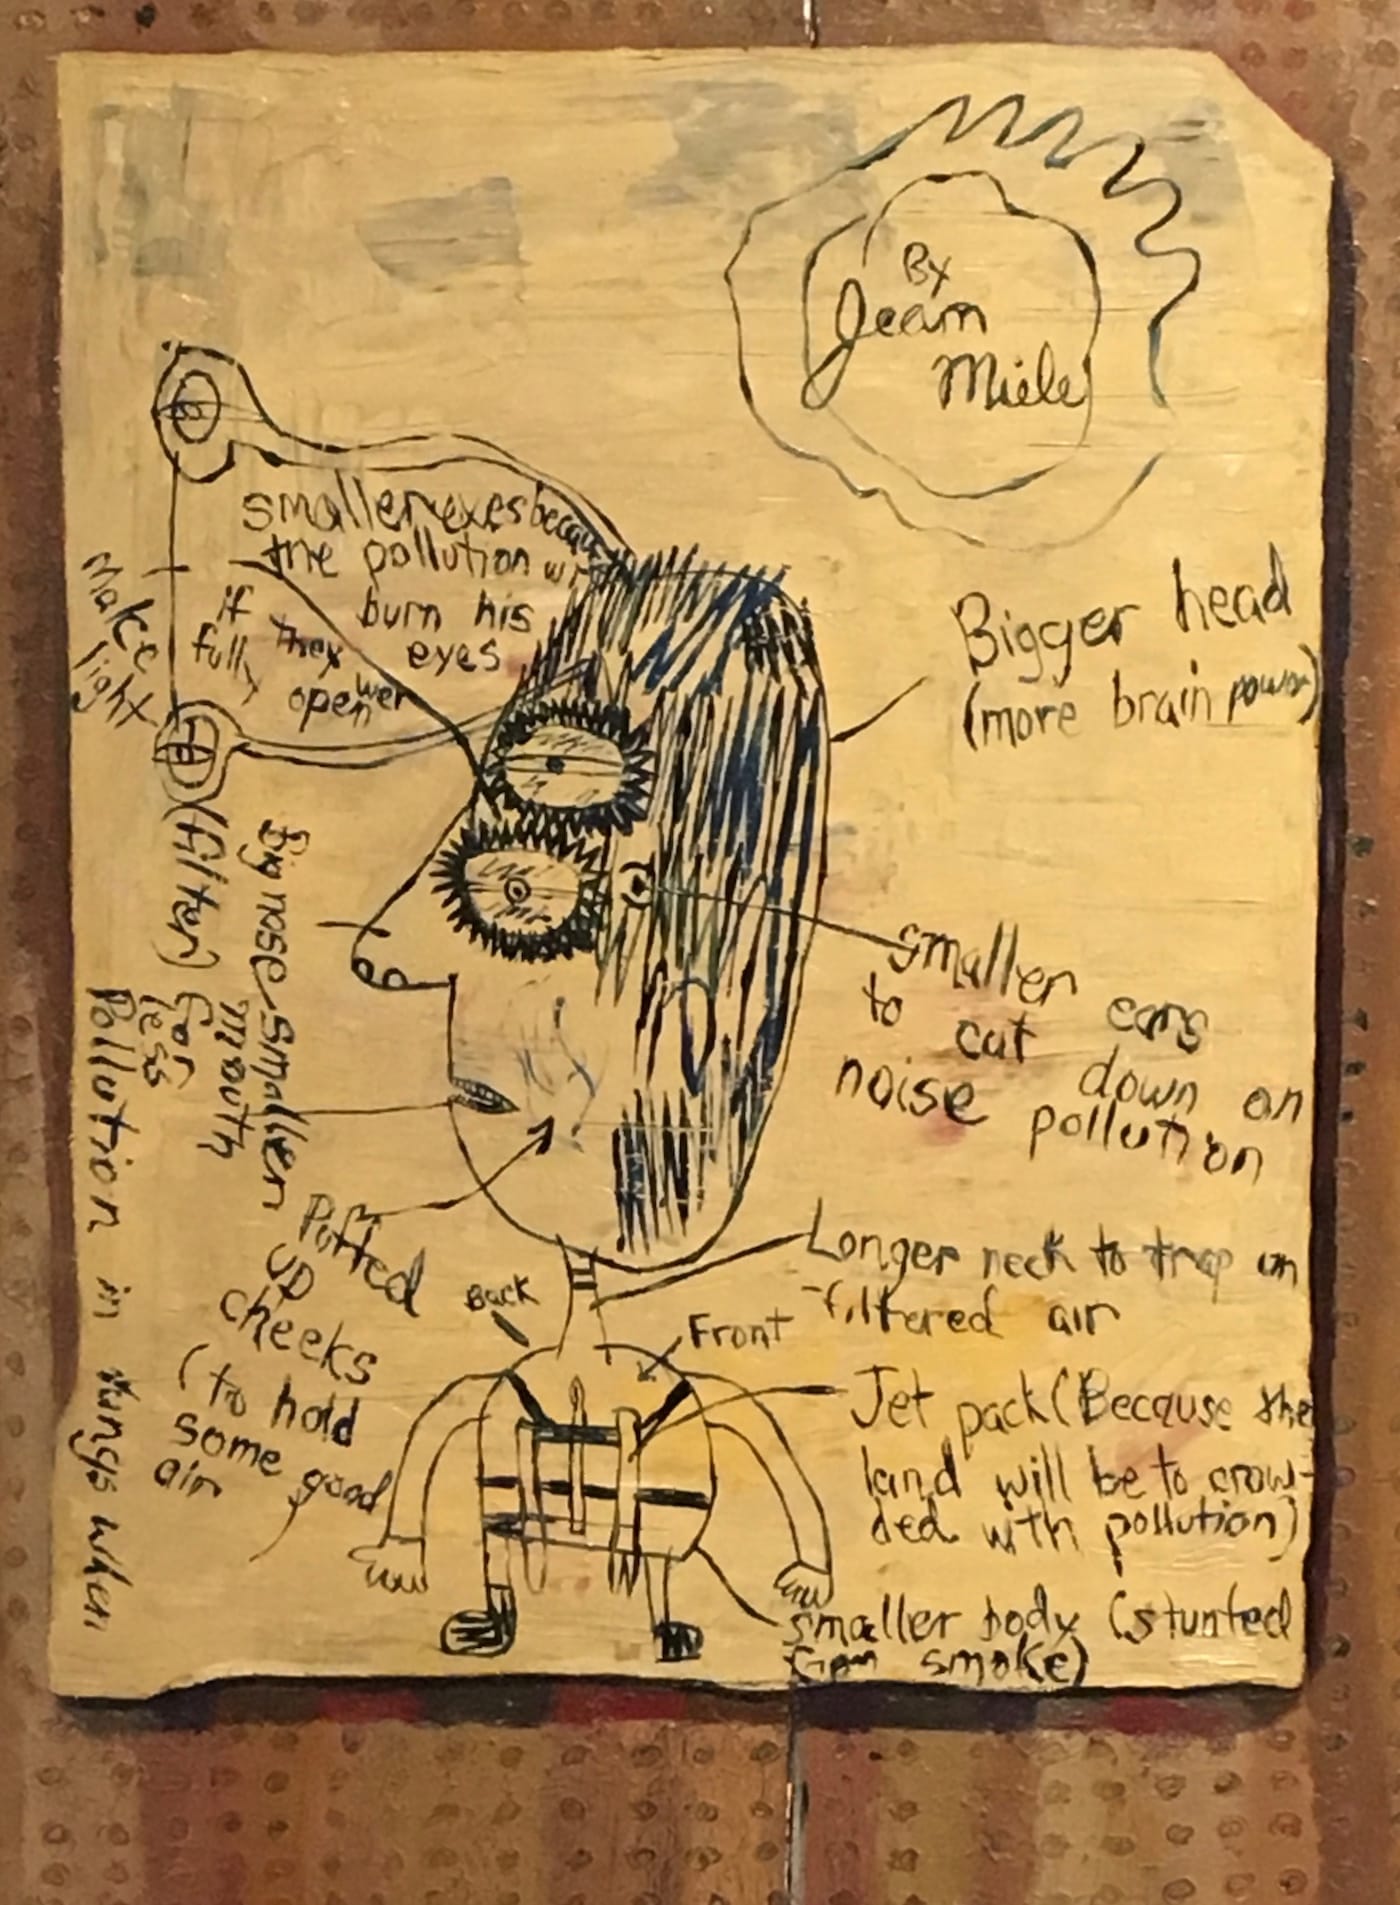 By
Jeam
Miele
smaller eyes becau
the pollution wi
if
burn his
fully
they
eyes
wer
open
make
light
Bigger head
(more brain power)
smaller ears
to cut down on
noise pollution
Big nose smaller
mouth
(filter) for
less
Pollution in lungs when
Puffed
up
cheeks
(to hold
some good
air
Longer neck to trap un
-filtered air
Back
Front
Jet pack (Because the
land will be to crow-
ded with pollution)
smaller body (stunted
smoke)